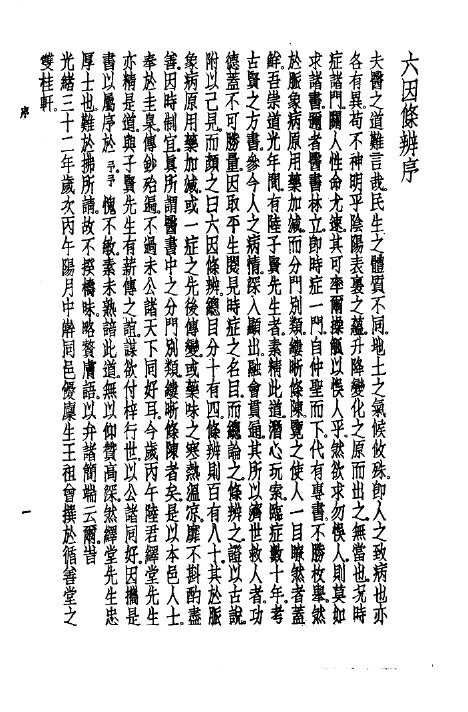 六因條辨序
夫醫之道難言哉民生之體質不同地土之氣候攸殊即人之致病也亦
各有異苟不神明乎陰陽表裏之蘊升降變化之原而出之無當也況時
症諸門關人性命尤速其可率爾操觚以悞人乎然欲求勿悞人則莫如
求諸書爾者醫書林立即時症一門自仲聖而下代有專書不勝枚舉然
於脈象病原用藥加減而分門別類縷晰條陳覽之使人一目瞭然者蓋
鮮吾崇道光年間有陸子賢先生者素精此道潛心玩索臨症數十年考
古賢之方書參今人之病情深入顯出融會貫通其所以濟世救人者功
德蓋不可勝量因取平生閱見時症之名目而總論之條辨之證以古說
附以己見而顏之曰六因條辨總目分十有四條辨則百有八十其於脈
象病原用藥加減或一症之先後傳變或藥味之寒熱溫涼靡不斟酌盡
善因時制宜眞所謂醫書中之分門別類縷晰條陳者矣是以本邑人士
奉於圭臬傳鈔殆遍不過未公諸天下同好耳今歲丙午陸君繹堂先生
亦精是道與子賢先生有薪傳之誼謀欲付梓行世以公諸同好因攜是
書以屬序於予予愧不敏素未熟諳此道無以仰贊高深然繹堂先生忠
厚士也難於拂所請故不揆檮昧略贅膚語以弁諸簡端云爾旹
光緒三十二年歲次丙午陽月中澣同邑優廩生王祖畬撰於循善堂之
雙桂軒
序
一